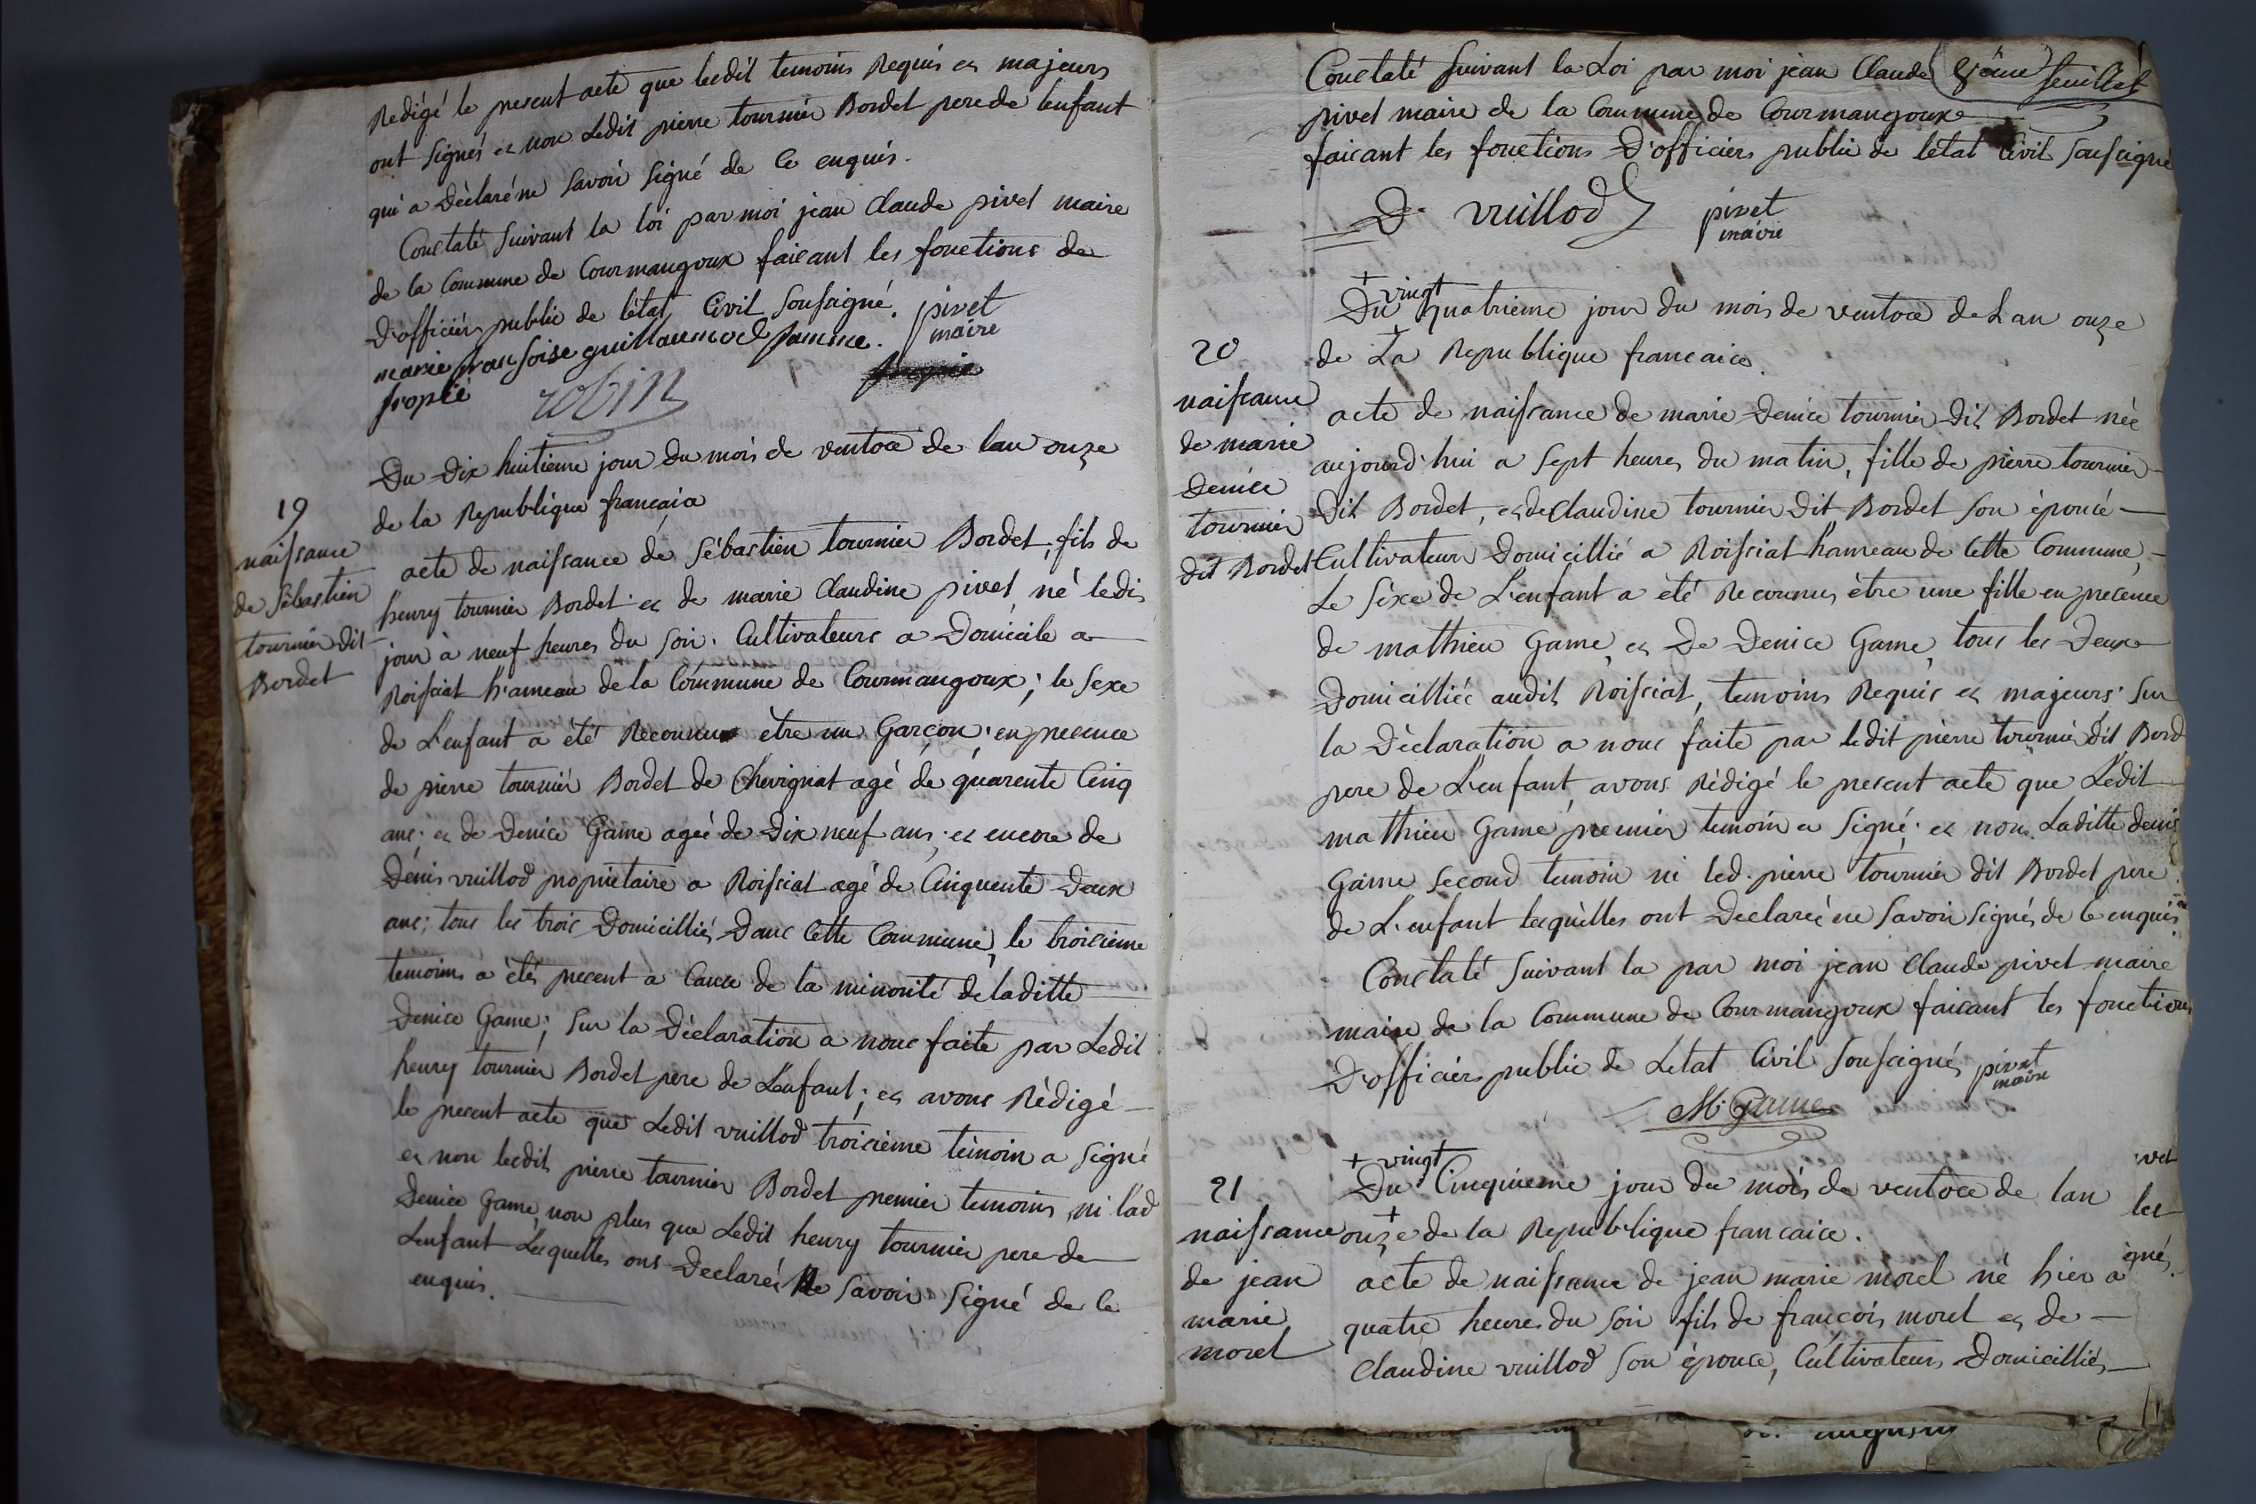 Redigé le present acte que lesdit temoins Requis es majeurs
ont signés es non Ledit pierre tournier Bordet pere de lenfant
qui a Dèclaré ne savoir signé de ce enquis.
Constaté suivant la loi par moi jean claude pivet maire
de la Commune de Courmangoux faisant les fonctions de
D'officier public de létat Civil soussigné. pivet
maire
marie fransoise guillaumod famme.
robin
19
naissance
de Sébastien
tournier dit
Bordet
Du Dix huitieme jour du mois de ventose de lan onze
de la Republique francaise
acte de naissance de Sébastien tournier Bordet, fils de
henry tournier Bordet es de marie Claudine pivet né ledis
jour à neuf heures du soir. Cultivateurs a Domicile a
Roissiat h'ameau de la Commune de Courmangoux; le sexe
de L'enfant a été Reconnu etre un Garçon; en presence
de pierre tournier Bordet de Chevignat agé de quarente Cinq
ans; es de Denice Game ageé de Dix neuf ans; es encore de
Dénis vuillod propriétaire a Roissiat agé de Cinquente Deux
ans; tous les trois Domicilliés Dans Cette Commune, le troisieme
temoins a étés present a Cause de la minorité de laditte
Denice Game; sur la Déclaration a nous faite par Ledit
henry tournier Bordet pere de L'enfant; es avons Rédigé
le present acte que Ledit vuillod troisieme témoin a signé
es non lesdit pierre tournier Bordet premier temoins, ni lad
Denice Game, non plus que Ledit henry tournier pere de
L'enfant Lesquelles ons Declarés Ne savoir signé de ce
enquis.
Constaté suivant la Loi par moi jean Claude
feuillet
pivet maire de la Commune de Courmangoux
faisant les fonctions D'officiers public de létat Civil soussigné
D. vuillod pivet
maire
20
naissance
de marie
Denice
tournier
dit Bordet
+ vingt
Du quatrieme jour du mois de ventose de Lan onze
de La Republique francaise.
acte de naissance de marie Denice tournier Dit Bordet née
aujourd'hui a sept heures du matin, fille de pierre tournier
Dit Bordet, es de Claudine tournier Dit Bordet son épouse
Cultivateurs Domicillié a Roissiat h'ameau de Cette Commune,
Le sexe de L'enfant a été Reconnus être une fille en presence
de matthieu Game, es De Denice Game, tous les Deux
Domicilliés audit Roissiat, temoins Requis es majeurs; sur
la Dèclaration a nous faite par ledit pierre tournier dit Bord
pere de L'enfant, avons Rédigé le present acte que Ledit
mathieu Game premier temoin a signé; es non Laditte denis
Game second temoin ni led. pierre tournier dit Bordet pere
de L'enfant lesquèlles ont Declareé ne savoir signés de ce enquis
Constaté suivant la par moi jean Claude pivet maire
maire de la Commune de Courmangoux faisant les fonctions
D'officiers public de Letat Civil soussignés pivet
maire
M. Game
21
naissance
de jean
marie
morel
+ vingt
Du Cinquieme jour du mois de ventose de lan
onze de la Republique francaise.
acte de naissance de jean marie morel né hier a
quatre heures du soir fils de francois morel es de
Claudine vuillod son épouse, Cultivateurs Domicilliés